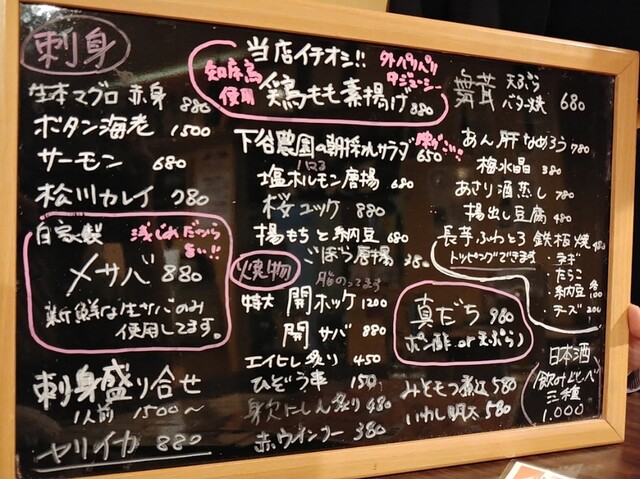 刺身
生本マグロ 赤身 880
ボタン海老 1500
サーモン 680
松川カレイ 980
自家製 浅じめだから旨い!!
〆サバ 880
新鮮な生サバのみ
使用してます。
刺身盛り合せ
1人前 1500〜
ヤリイカ 880
当店イチオシ!!
知床鳥
使用
外パリパリ
中ジューシー
鶏もも素揚げ 880
下谷農園の朝採れサラダ 650
塩ホルモン唐揚 680
桜ユッケ 880
揚もちと納豆 680
ごぼう唐揚 380
焼物
脂のってます
特大 開ホッケ 1200
開サバ 880
エイヒレ炙り 450
ひどう串 150
身欠にしん炙り 480
赤ウインナー 380
舞茸 天ぷら
バター焼 680
あん肝なめろう 780
梅水晶 380
あさり酒蒸し 780
揚出し豆腐 480
長芋ふわとろ鉄板焼 480
トッピングできます
・ネギ
・たらこ
・納豆 各100
・チーズ 200
真だち 980
ポン酢 or 天ぷら
みそもつ煮込 580
いわし明太 580
日本酒
飲みくらべ
三種
1.000